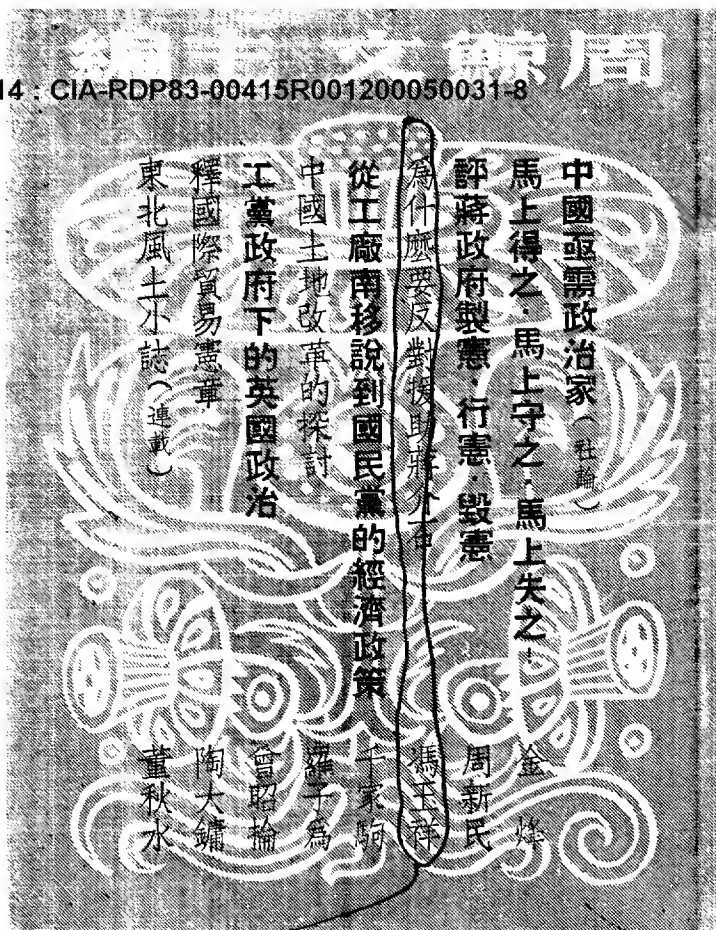 周鯨文主編
14 : CIA-RDP83-00415R001200050031-8
中國亟需政治家（社論）
馬上得之·馬上守之·馬上失之！ 金烽
評蔣政府製憲·行憲·毀憲 周新民
為什麼要反對援助蔣介石 馮玉祥
從工廠南移說到國民黨的經濟政策 千家駒
中國土地改革的探討 羅子為
工黨政府下的英國政治 曾昭掄
釋國際貿易憲章 陶大鏞
東北風土小誌（連載） 董秋水